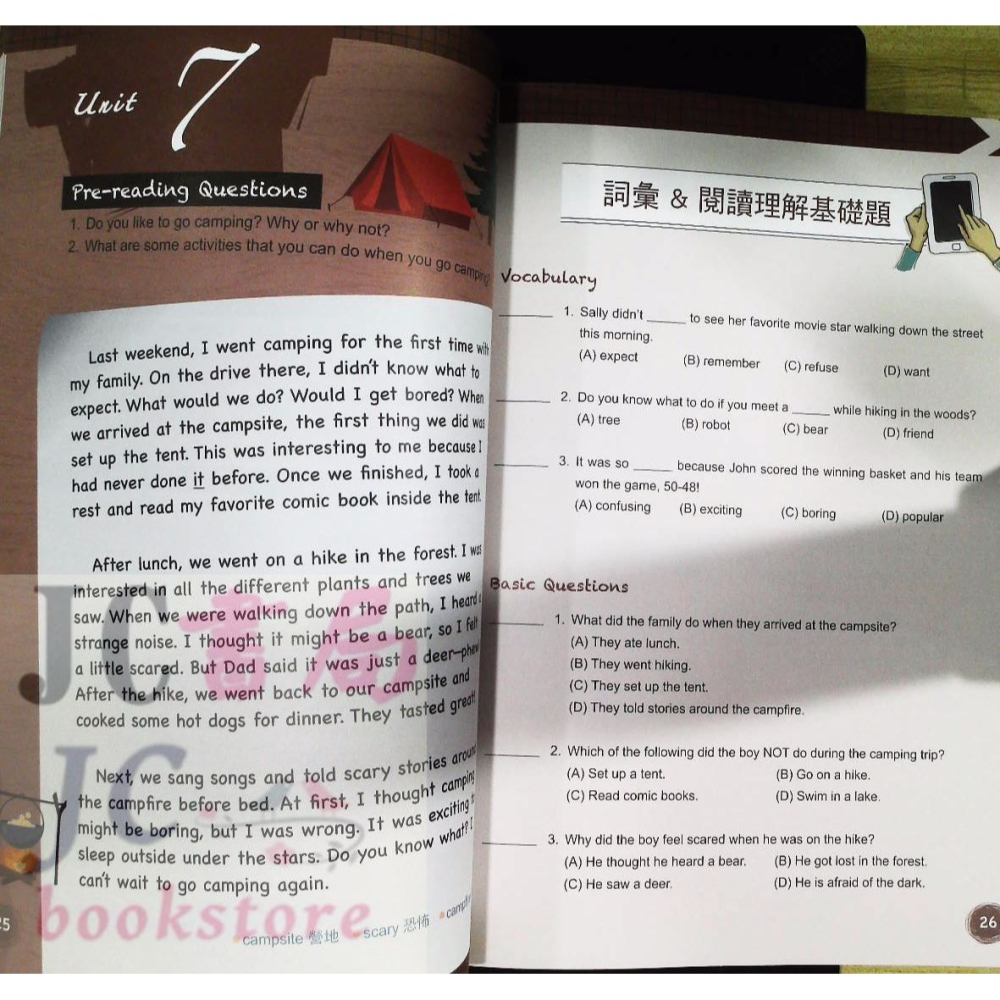 Unit 7
Pre-reading Questions
1. Do you like to go camping? Why or why not?
2. What are some activities that you can do when you go camping?
Last weekend, I went camping for the first time with
my family. On the drive there, I didn't know what to
expect. What would we do? Would I get bored? When
we arrived at the campsite, the first thing we did was
set up the tent. This was interesting to me because I
had never done it before. Once we finished, I took a
rest and read my favorite comic book inside the tent.
After lunch, we went on a hike in the forest. I was
interested in all the different plants and trees we
saw. When we were walking down the path, I heard a
strange noise. I thought it might be a bear, so I felt
a little scared. But Dad said it was just a deer—phew!
After the hike, we went back to our campsite and
cooked some hot dogs for dinner. They tasted great!
Next, we sang songs and told scary stories around
the campfire before bed. At first, I thought camping
might be boring, but I was wrong. It was exciting to
sleep outside under the stars. Do you know what? I
can't wait to go camping again.
campsite 營地 scary 恐怖
25
JC書局
JC
bookstore
詞彙 & 閱讀理解基礎題
Vocabulary
1. Sally didn't ______ to see her favorite movie star walking down the street
this morning.
(A) expect (B) remember (C) refuse (D) want
2. Do you know what to do if you meet a ______ while hiking in the woods?
(A) tree (B) robot (C) bear (D) friend
3. It was so ______ because John scored the winning basket and his team
won the game, 50-48!
(A) confusing (B) exciting (C) boring (D) popular
Basic Questions
1. What did the family do when they arrived at the campsite?
(A) They ate lunch.
(B) They went hiking.
(C) They set up the tent.
(D) They told stories around the campfire.
2. Which of the following did the boy NOT do during the camping trip?
(A) Set up a tent. (B) Go on a hike.
(C) Read comic books. (D) Swim in a lake.
3. Why did the boy feel scared when he was on the hike?
(A) He thought he heard a bear. (B) He got lost in the forest.
(C) He saw a deer. (D) He is afraid of the dark.
26